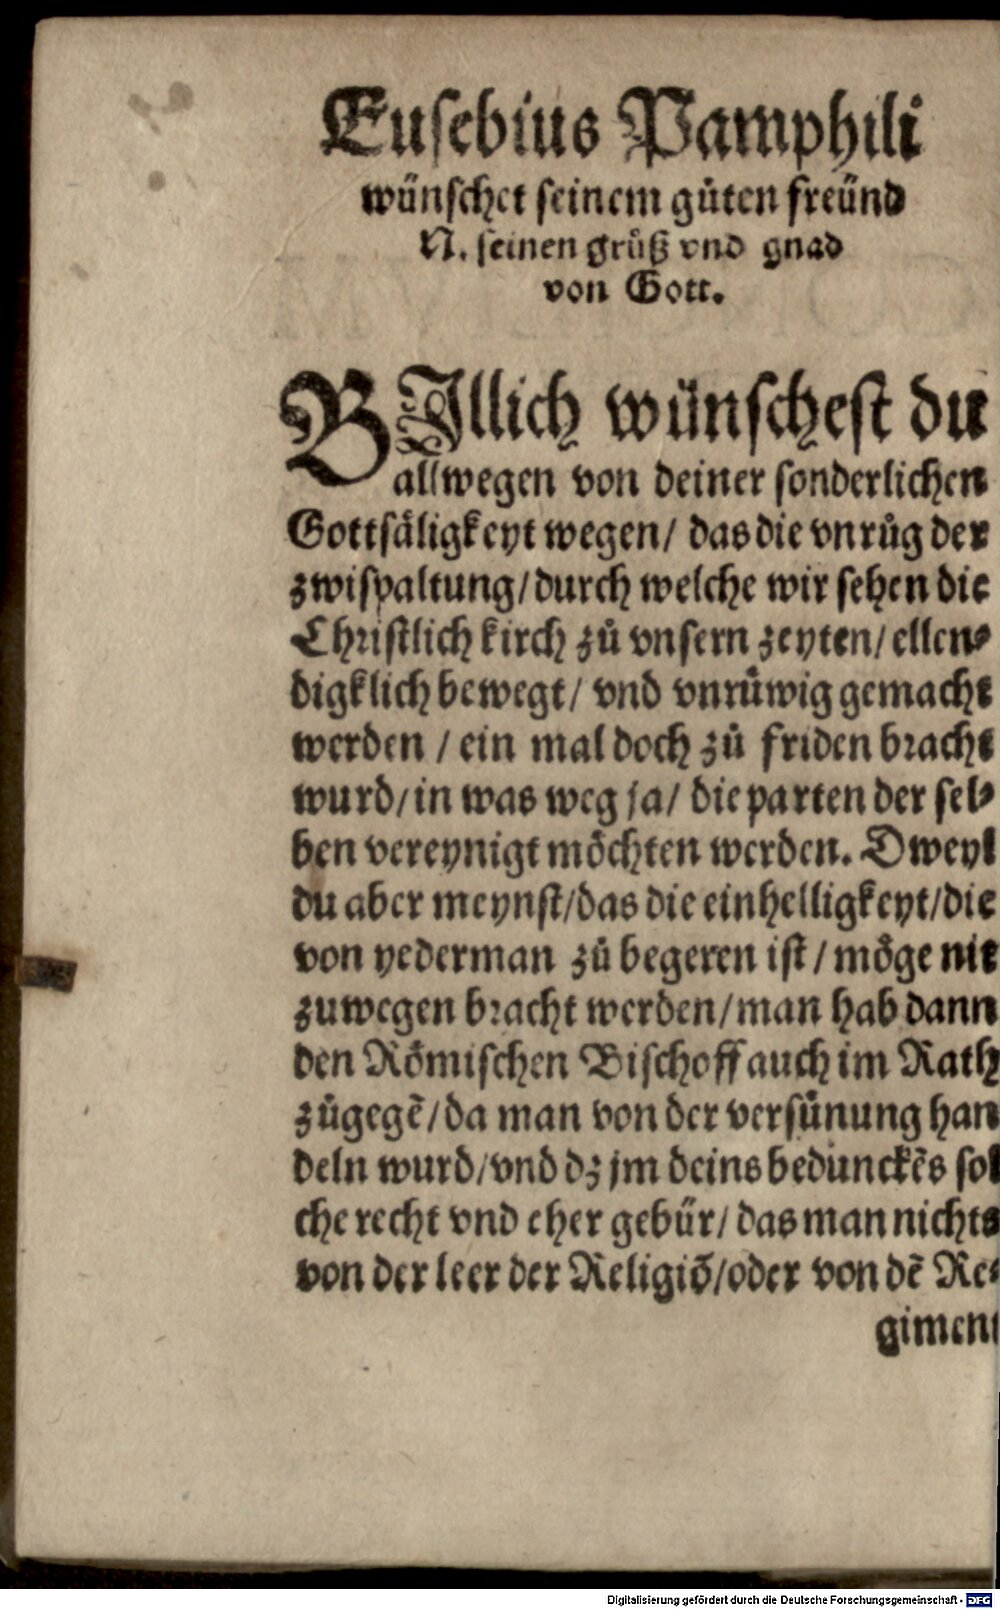 Eusebius Pamphili
wünschet seinem gůten freünd
N. seinen grůß vnd gnad
von Gott.
BIllich wünschest du
allwegen von deiner sonderlichen
Gottsäligkeyt wegen/ das die vnrůg der
zwispaltung/ durch welche wir sehen die
Christlich kirch zů vnsern zeyten/ ellen-
digklich bewegt/ vnd vnrüwig gemacht
werden / ein mal doch zů friden bracht
wurd/ in was weg ja/ die parten der sel-
ben vereynigt möchten werden. Dweyl
du aber meynst/ das die einhelligkeyt/ die
von yederman zů begeren ist / möge nit
zuwegen bracht werden/ man hab dann
den Römischen Bischoff auch im Rath
zůgegẽ/ da man von der versünung han
deln wurd/ vnd dz jm deins bedunckẽs sol
che recht vnd eher gebür/ das man nichts
von der leer der Religiõ/ oder von dẽ Re-
giment
Digitalisierung gefördert durch die Deutsche Forschungsgemeinschaft - DFG